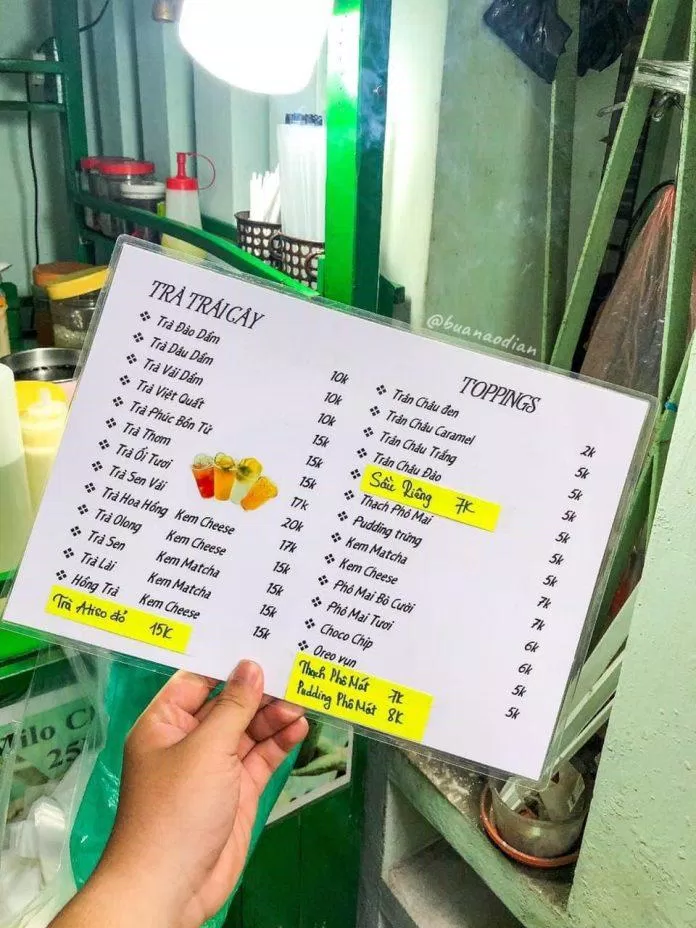 TRÀ TRÁI CÂY
❖ Trà Đào Dầm 10k
❖ Trà Dâu Dầm 10k
❖ Trà Vải Dầm 10k
❖ Trà Việt Quất 15k
❖ Trà Phúc Bồn Tử 15k
❖ Trà Thơm 15k
❖ Trà Ổi Tươi 17k
❖ Trà Sen Vải 20k
❖ Trà Hoa Hồng Kem Cheese 17k
❖ Trà Olong Kem Cheese 15k
❖ Trà Sen Kem Matcha 15k
❖ Trà Lài Kem Matcha 15k
❖ Hồng Trà Kem Cheese 15k
Trà Atiso đỏ 15K
@buanaodian
TOPPINGS
❖ Trân Châu đen 2k
❖ Trân Châu Caramel 5k
❖ Trân Châu Trắng 5k
❖ Trân Châu Đào 5k
Sầu Riêng 7K
❖ Thạch Phô Mai 5k
❖ Pudding trứng 5k
❖ Kem Matcha 7k
❖ Kem Cheese 7k
❖ Phô Mai Bò Cười 6k
❖ Phô Mai Tươi 6k
❖ Choco Chip 5k
❖ Oreo vụn 5k
Thạch Phô Mát 7k
Pudding Phô Mát 8K
Milo
25